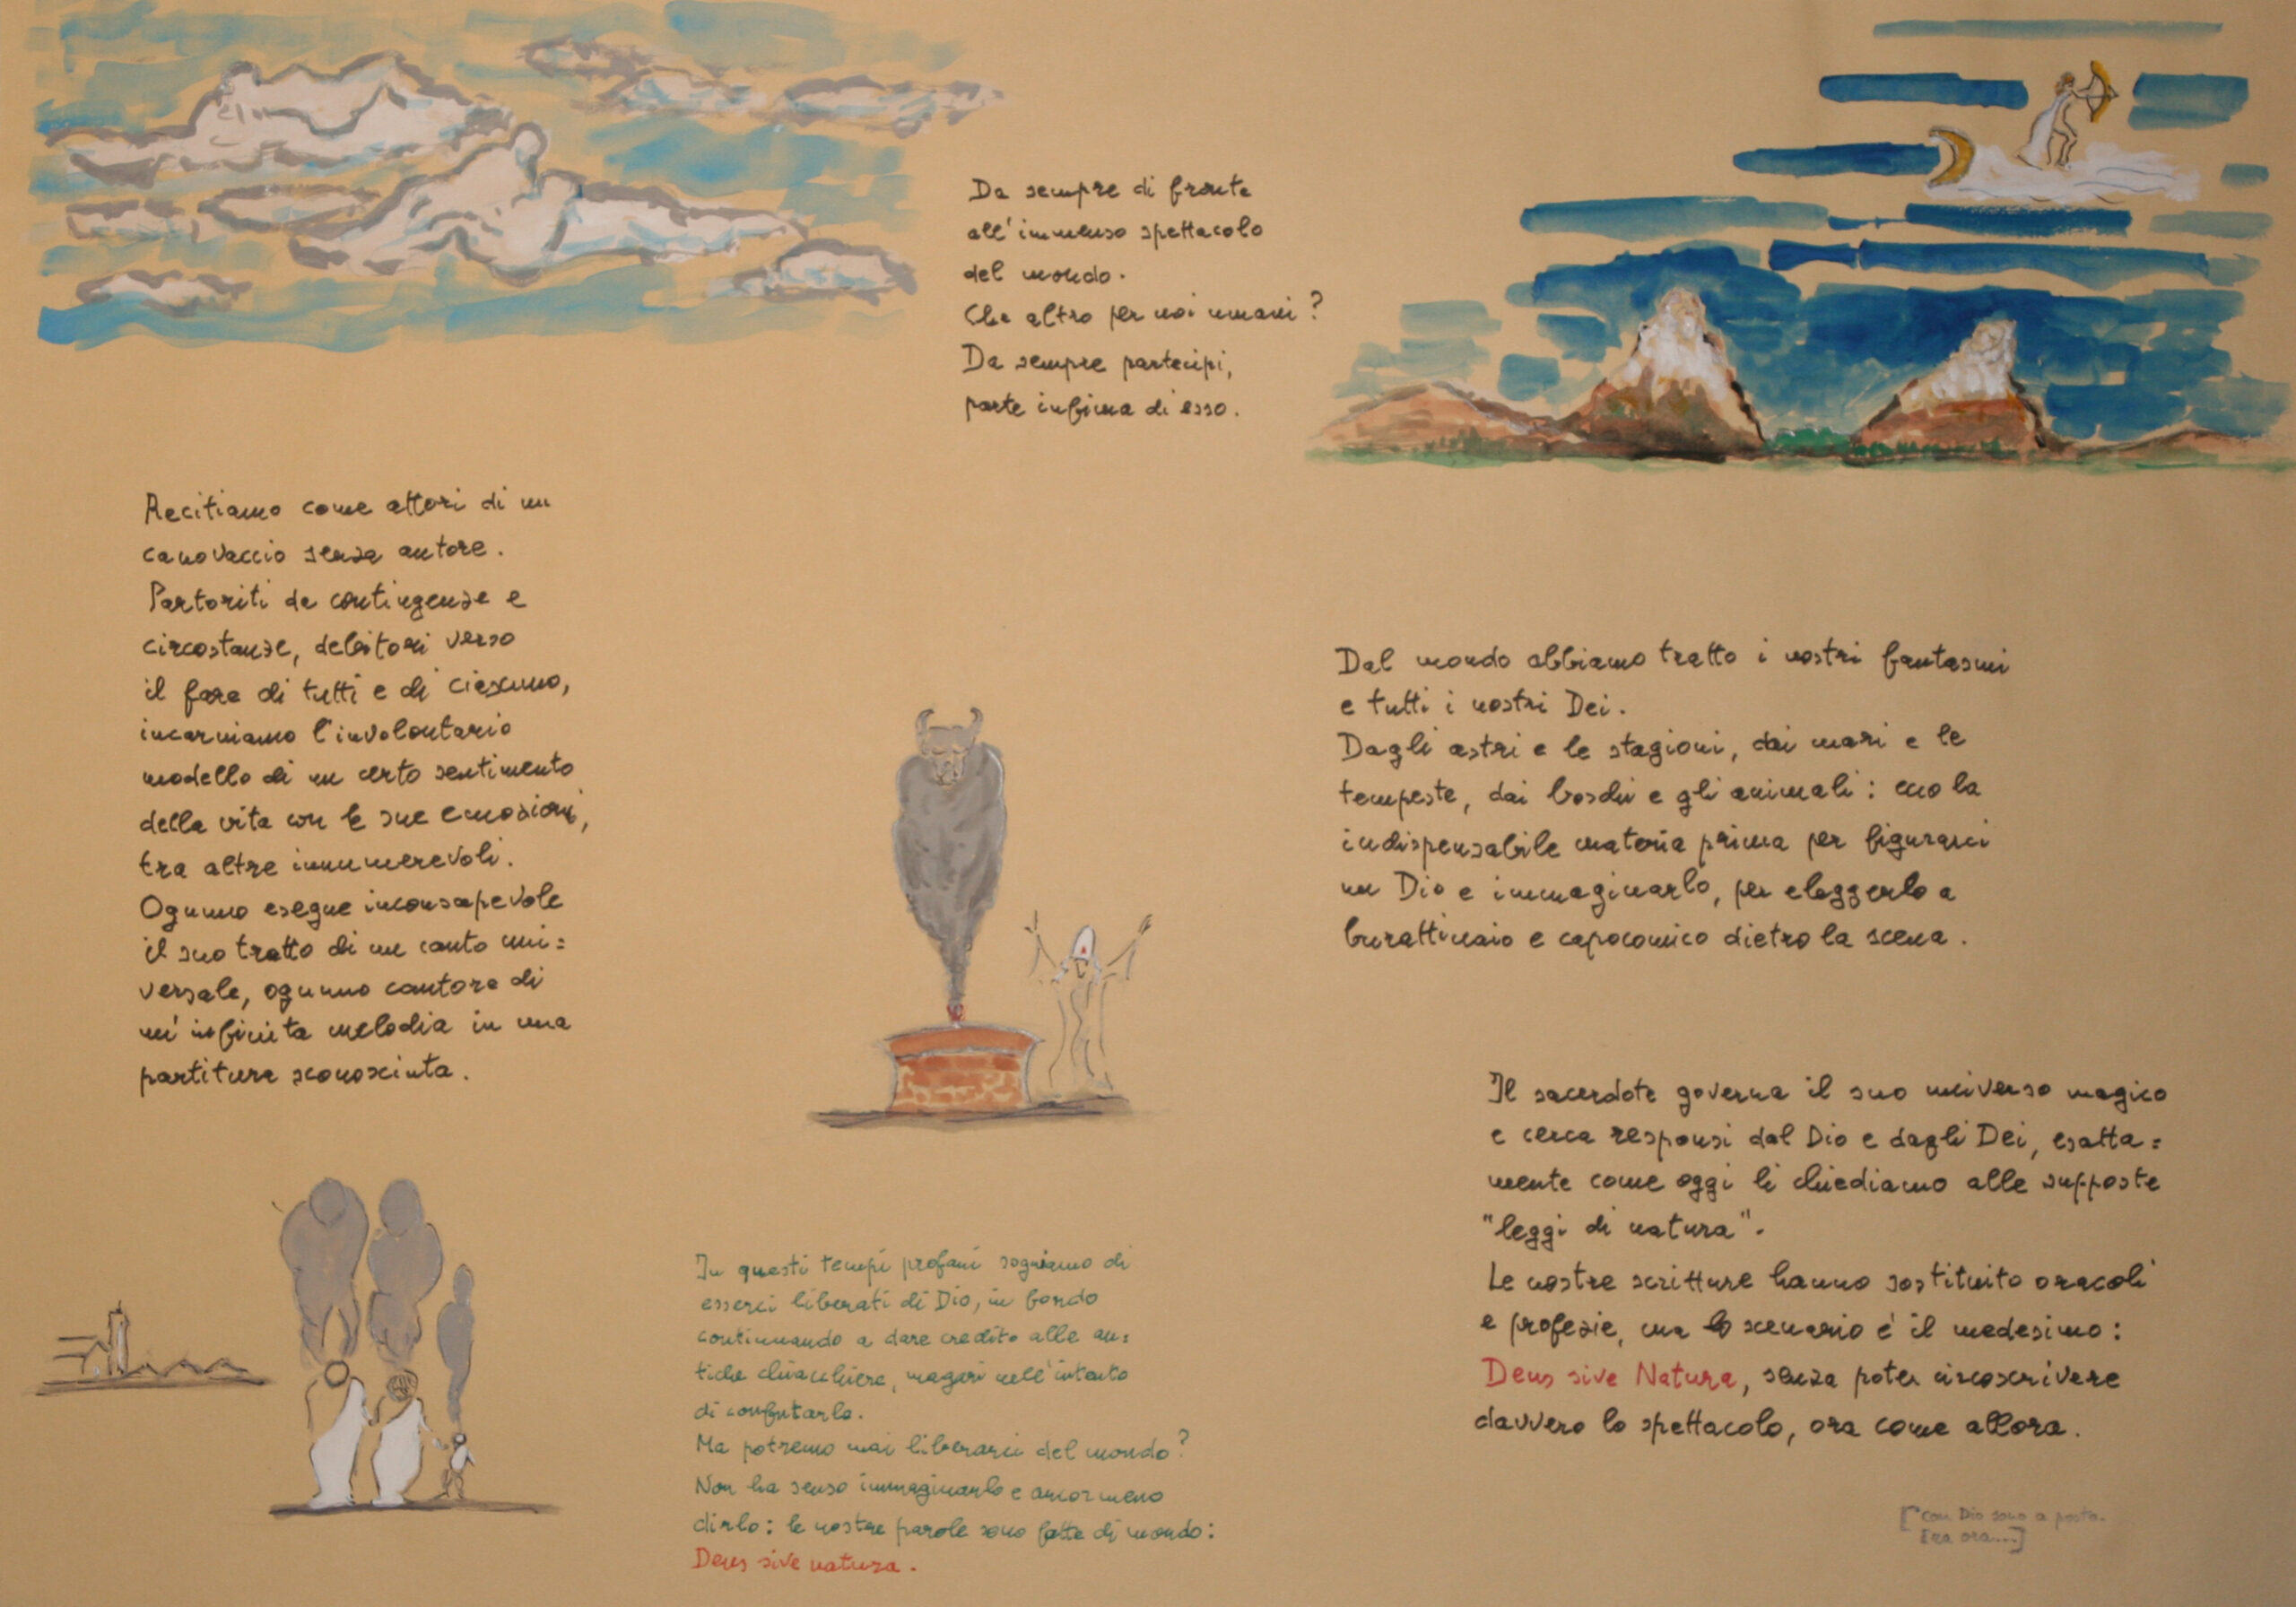 Da sempre di fronte
all'immenso spettacolo
del mondo.
Che altro per noi umani?
Da sempre partecipi,
parte infima di esso.
Recitiamo come attori di un
canovaccio senza autore.
Partoriti da contingenze e
circostanze, debitori verso
il fare di tutti e di ciascuno,
incarniamo l'involontario
modello di un certo sentimento
della vita con le sue emozioni,
tra altre innumerevoli.
Ognuno esegue inconsapevole
il suo tratto di un canto uni=
versale, ognuno cantore di
un'infinita melodia in una
partitura sconosciuta.
Dal mondo abbiamo tratto i nostri fantasmi
e tutti i nostri Dei.
Dagli astri e le stagioni, dai mari e le
tempeste, dai boschi e gli animali: ecco la
indispensabile materia prima per figurarci
un Dio e immaginarlo, per eleggerlo a
burattinaio e capocomico dietro la scena.
Il sacerdote governa il suo universo magico
e cerca responsi dal Dio e dagli Dei, esatta=
mente come oggi li chiediamo alle supposte
"leggi di natura".
Le nostre scritture hanno sostituito oracoli
e profezie, ma lo scenario è il medesimo:
Deus sive Natura, senza poter circoscrivere
davvero lo spettacolo, ora come allora.
In questi tempi profani sogniamo di
esserci liberati di Dio, in fondo
continuando a dare credito alle an=
tiche chiacchiere, magari nell'intento
di confutarlo.
Ma potremo mai liberarci del mondo?
Non ha senso immaginarlo e ancor meno
dirlo: le nostre parole sono fatte di mondo:
Deus sive natura.
[con Dio sono a posto.
Era ora...]